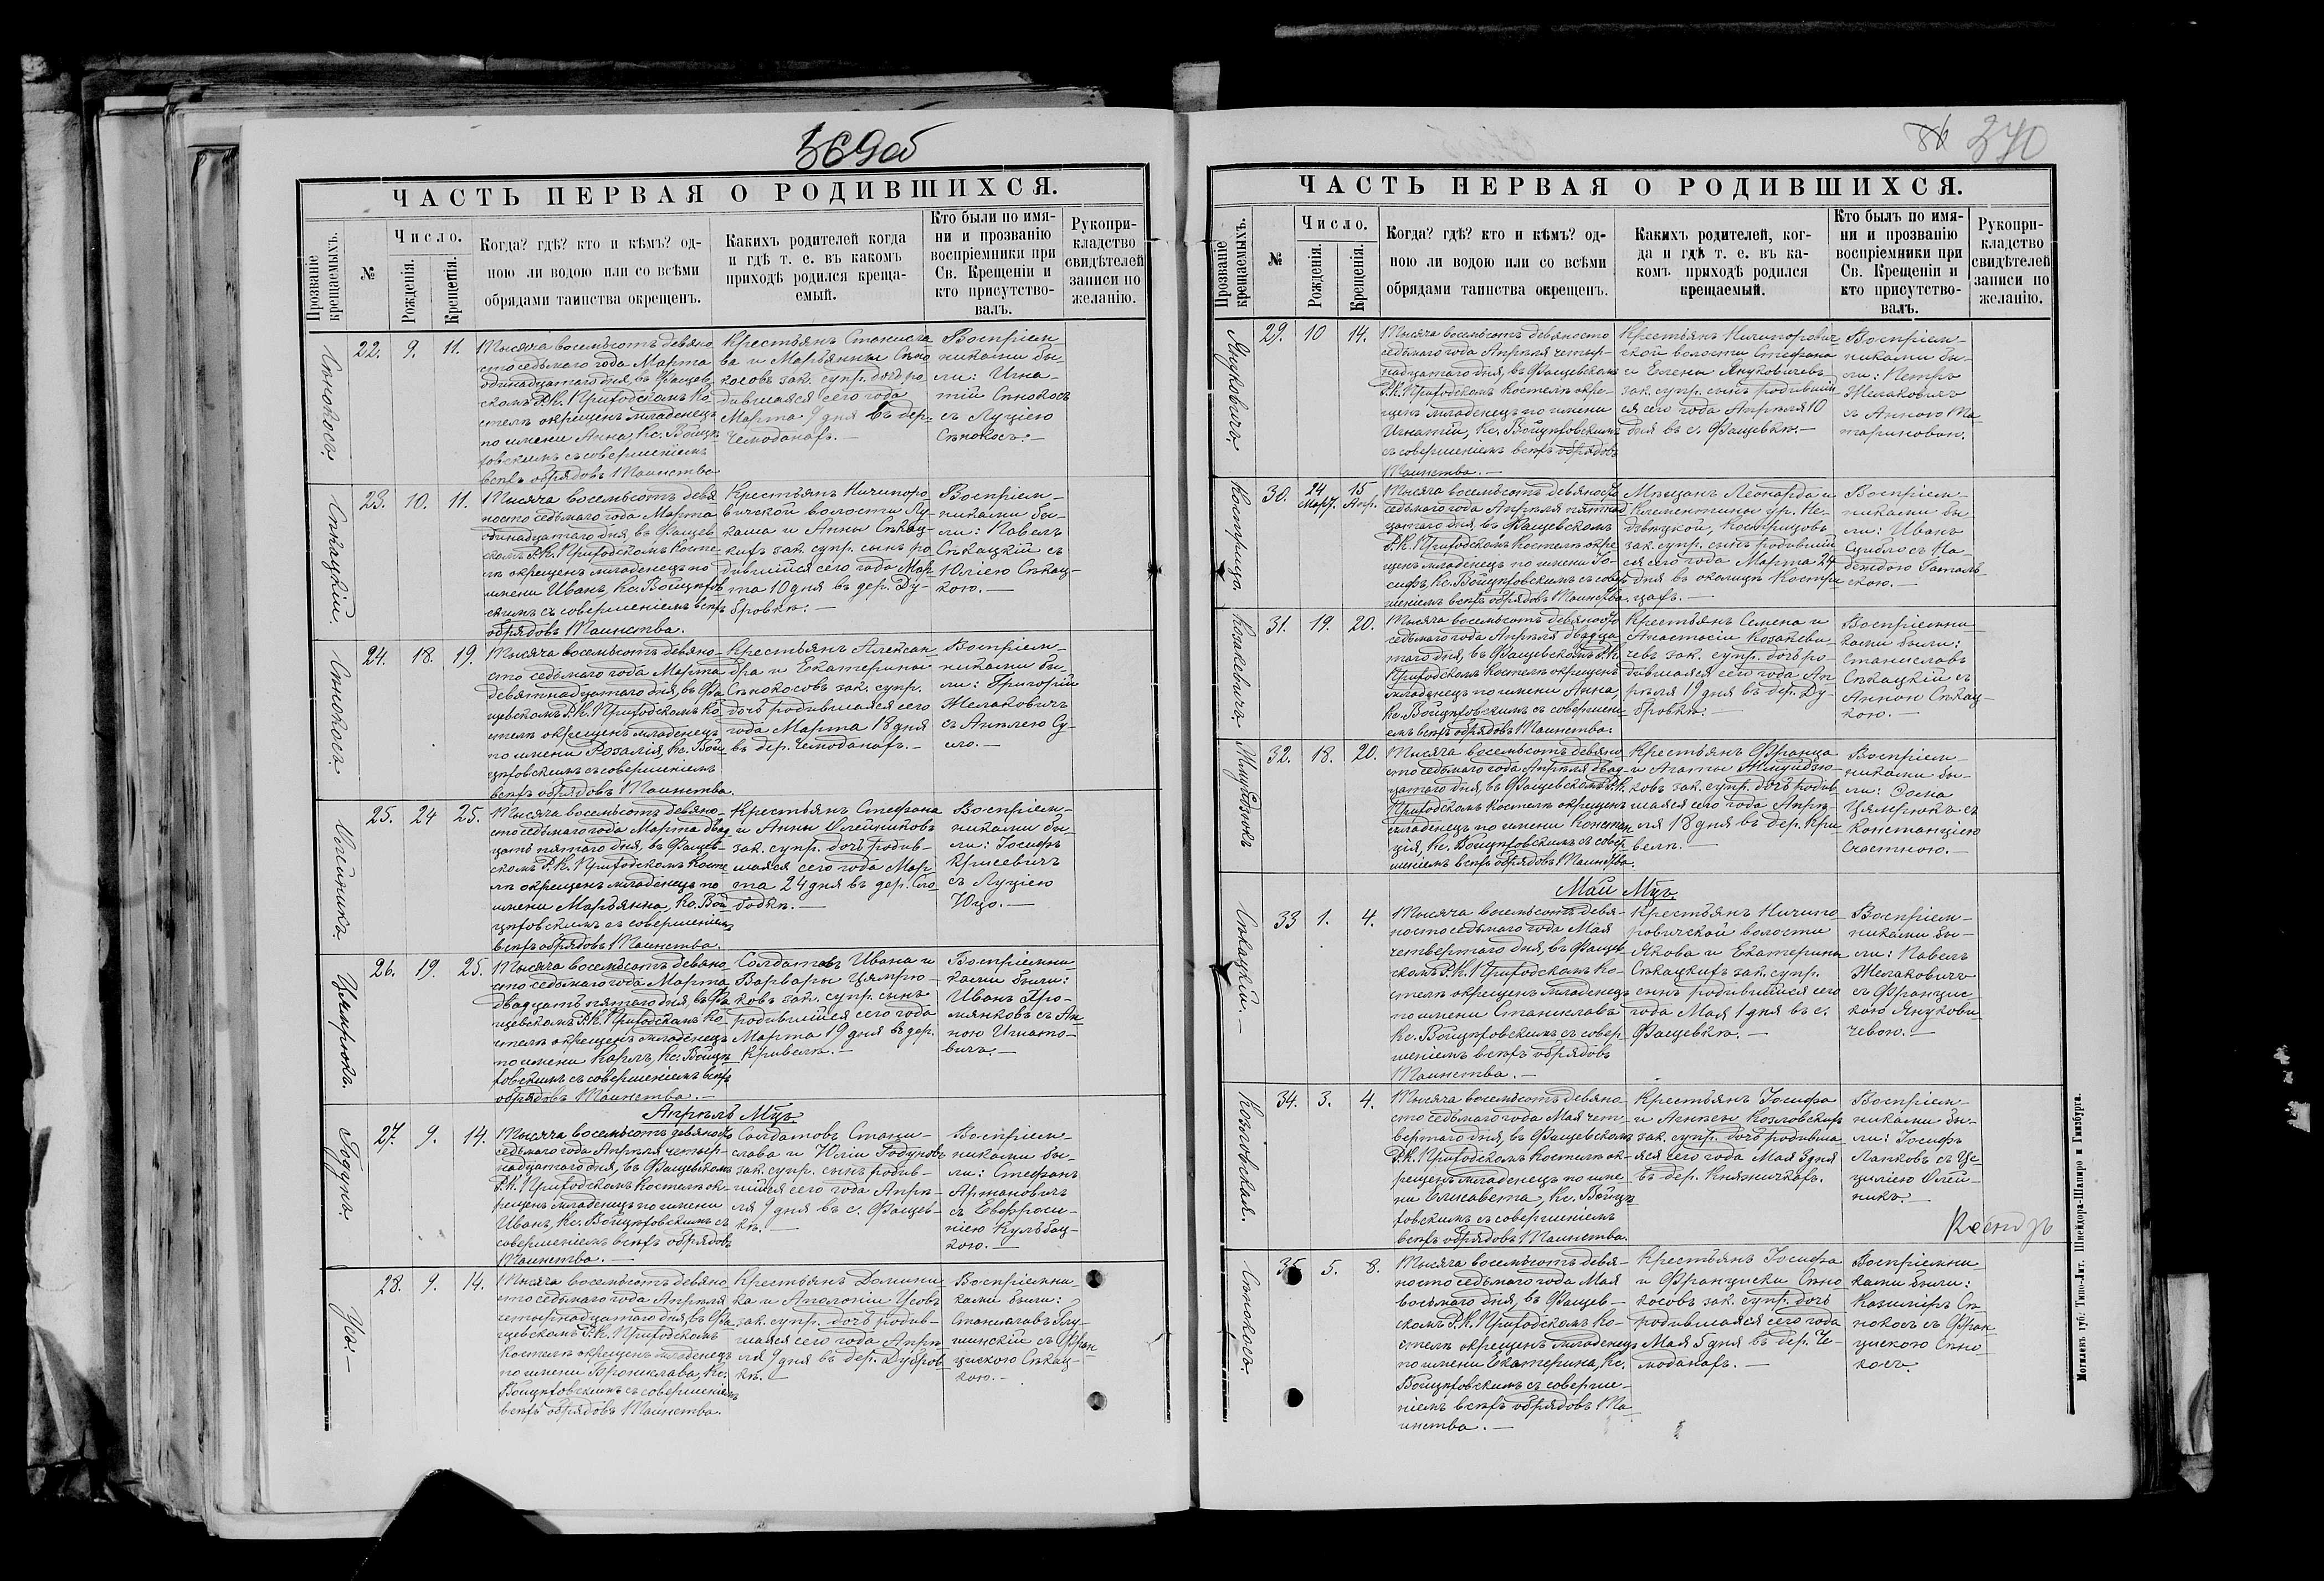 369об
ЧАСТЬ ПЕРВАЯ О РОДИВШИХСЯ.
Прозваніе крещаемыхъ.
№
Число.
Рожденія.
Крещенія.
Когда? гдѣ? кто и кѣмъ? од-
ною ли водою или со всѣми
обрядами таинства окрещенъ.
Какихъ родителей когда
и гдѣ т. е. въ какомъ
приходѣ родился креща-
емый.
Кто были по имя-
ни и прозванію
воспріемники при
Св. Крещеніи и
кто присутство-
валъ.
Рукопри-
кладство
свидѣтелей
записи по
желанію.
Сѣнокосъ.
22. 9. 11.
Тысяча восемьсотъ девяно
сто седьмаго года Марта
одинадцатаго дня, въ Фащев
скомъ Р.К. Приходскомъ Ко
стелѣ окрещенъ младенецъ
по имени Анна, Кс. Войцѣ
ховскимъ съ совершеніемъ
всѣхъ обрядовъ Таинства
Крестьянъ Станисла
ва и Марьянны Сѣно
косовъ зак. супр. дочь ро
дившаяся сего года
Марта 9 дня въ дер.
Чемоданах. —
Воспріем-
никами бы-
ли: Игна-
тій Сѣнокосъ
съ Луціею
Сѣнокосъ. —
Сѣкацкій.
23. 10. 11.
Тысяча восемьсотъ девя
носто седьмаго года Марта
одинадцатаго дня, въ Фащев
скомъ Р.К. Приходскомъ Косте-
лѣ окрещенъ младенецъ по
имени Иванъ, Кс. Войцѣхов
скимъ съ совершеніемъ всѣхъ
обрядовъ Таинства.
Крестьянъ Ничипоро
вичской волости Лу-
каша и Анны Сѣкац-
кихъ зак. супр. сынъ ро
дившійся сего года Мар-
та 10 дня въ дер. Ду-
бровкѣ: —
Воспріем-
никами бы-
ли: Павелъ
Сѣкацкій съ
Юліею Сѣкац-
кою. —
Сѣнокосъ
24. 18. 19.
Тысяча восемьсотъ девяно-
сто седьмаго года Марта
девятнадцатаго дня, въ Фа
щевскомъ Р.К. Приходскомъ Ко
стелѣ окрещенъ младенецъ
по имени Розалія, Кс. Вой
цѣховскимъ съ совершеніемъ
всѣхъ обрядовъ Таинства.
Крестьянъ Алексан-
дра и Екатерины
Сѣнокосовъ зак. супр.
дочь родившаяся сего
года Марта 18 дня
въ дер. Чемоданах. —
Воспріем-
никами бы-
ли: Григорій
Желаковичъ
съ Анелею Су-
сло. —
25. 24 25.
Тысяча восемьсотъ девяно-
сто седьмаго года Марта двад
цать пятаго дня, въ Фащев-
скомъ Р.К. Приходскомъ Косте
лѣ окрещенъ младенецъ по
имени Марьянна, Кс. Вой
цѣховскимъ съ совершеніемъ
всѣхъ обрядовъ Таинства.
Крестьянъ Стефана
и Анны Олейниковъ
зак. супр. дочь родив-
шаяся сего года Мар
та 24 дня въ дер. Сло
бодкѣ. —
Воспріем-
никами бы-
ли: Іосифъ
Крисевичъ
съ Луціею
Юцо. —
Цямрюкъ.
26. 19. 25.
Тысяча восемьсотъ девяно
сто седьмаго года Марта
двадцать пятаго дня, въ Фа
щевскомъ Р.К. Приходскомъ Ко
стелѣ окрещенъ младенецъ
по имени Карлъ, Кс. Войцѣ
ховскимъ съ совершеніемъ всѣхъ
обрядовъ Таинства. —
Солдатовъ Ивана и
Варвары Цямрю-
ковъ зак. супр. сынъ
родившійся сего года
Марта 19 дня въ дер.
Кривелѣ. —
Воспріемни-
ками были:
Иванъ Хро-
мянковъ съ Ан
ною Игнато-
вичъ. —
Апрѣль Мцъ.
Годунъ.
27. 9. 14.
Тысяча восемьсотъ девяносто
седьмаго года Апрѣля четыр-
надцатаго дня, въ Фащевскомъ
Р.К. Приходскомъ Костелѣ ок-
рещенъ младенецъ по имени
Иванъ, Кс. Войцѣховскимъ съ
совершеніемъ всѣхъ обрядовъ
Таинства. —
Солдатовъ Стани-
слава и Юліи Годуновъ
зак. супр. сынъ родив-
шійся сего года Апрѣ-
ля 9 дня въ с. Фащев-
кѣ. —
Воспріем-
никами бы-
ли: Стефанъ
Артановичъ
съ Евфроси-
ніею Кульбац-
кою. —
Усъ. —
28. 9. 14.
Тысяча восемьсотъ девяно
сто седьмаго года Апрѣля
четырнадцатаго дня, въ Фа
щевскомъ Р.К. Приходскомъ
Костелѣ окрещенъ младенецъ
по имени Брониславa, Кс.
Войцѣховскимъ съ совершеніемъ
всѣхъ обрядовъ Таинства.
Крестьянъ Домини
ка и Аполоніи Усовъ
зак. супр. дочь родив-
шаяся сего года Апрѣ
ля 9 дня въ дер. Дубров-
кѣ. —
Воспріемни
ками были:
Станиславъ Глу-
шинскій съ Фран
цискою Сѣкац-
кою. —
370
ЧАСТЬ ПЕРВАЯ О РОДИВШИХСЯ.
Прозваніе крещаемыхъ.
№
Число.
Рожденія.
Крещенія.
Когда? гдѣ? кто и кѣмъ? од-
ною ли водою или со всѣми
обрядами таинства окрещенъ.
Какихъ родителей, ког-
да и гдѣ т. е. въ ка-
комъ приходѣ родился
крещаемый.
Кто былъ по имя-
ни и прозванію
воспріемники при
Св. Крещеніи и
кто присутство-
валъ.
Рукопри-
кладство
свидѣтелей
записи по
желанію.
Януковичъ.
29. 10 14.
Тысяча восемьсотъ девяносто
седьмаго года Апрѣля четыр-
надцатаго дня, въ Фащевскомъ
Р.К. Приходскомъ Костелѣ окре-
щенъ младенецъ по имени
Игнатій, Кс. Войцѣховскимъ
съ совершеніемъ всѣхъ обрядовъ
Таинства. —
Крестьянъ Ничипорович
ской волости Стефана
и Елены Януковичевъ
зак. супр. сынъ родившій
ся сего года Апрѣля 10
дня въ с. Фащевкѣ. —
Воспріем-
никами бы-
ли: Петръ
Желаковичъ
съ Анною Ма
тариновою.
Кострица.
30. 24 Март. 15 Апр.
Тысяча восемьсотъ девяносто
седьмаго года Апрѣля пятнад
цатаго дня, въ Фащевскомъ
Р.К. Приходскомъ Костелѣ окре
щенъ младенецъ по имени Іо-
сифъ, Кс. Войцѣховскимъ съ совер
шеніемъ всѣхъ обрядовъ Таинства.
Мѣщанъ Леонарда и
Клементины ур. Не-
дзвѣцкой, Кострицовъ
зак. супр. сынъ родившій
ся сего года Марта 24
дня въ околицѣ Костри
цахъ. —
Воспріем-
никами бы-
ли: Иванъ
Сцибло съ На-
деждою Гаталь-
скою. —
Козакевичъ.
31. 19. 20.
Тысяча восемьсотъ девяносто
седьмаго года Апрѣля двадца-
таго дня, въ Фащевскомъ Р.К.
Приходскомъ Костелѣ окрещенъ
младенецъ по имени Анна,
Кс. Войцѣховскимъ съ совершені
емъ всѣхъ обрядовъ Таинства.
Крестьянъ Семена и
Анастасіи Козакеви-
чевъ зак. супр. дочь ро-
дившаяся сего года Ап
рѣля 19 дня въ дер. Ду-
бровкѣ: —
Воспріемни
ками были:
Станиславъ
Сѣкацкій съ
Анною Сѣкац-
кою. —
32. 18. 20.
Тысяча восемьсотъ девяно
сто седьмаго года Апрѣля двад-
цатаго дня, въ Фащевскомъ Р.К.
Приходскомъ Костелѣ окрещенъ
младенецъ по имени Констан
ція, Кс. Войцѣховскимъ съ совер
шеніемъ всѣхъ обрядовъ Таинства.
Крестьянъ Франца
и Агаты Жмуйдзю-
ковъ зак. супр. дочь родив
шаяся сего года Апрѣ-
ля 18 дня въ дер. Кри
велѣ. —
Воспріем-
никами бы-
ли: Ѳома
Цямрюкъ съ
Констанціею
Счастною. —
Май Мцъ.
Сѣкацкій. —
33 1. 4.
Тысяча восемьсотъ девя-
носто седьмаго года Мая
четвертаго дня, въ Фащев-
скомъ Р.К. Приходскомъ Ко-
стелѣ окрещенъ младенецъ
по имени Станиславъ
Кс. Войцѣховскимъ съ совер-
шеніемъ всѣхъ обрядовъ
Таинства. —
Крестьянъ Ничипо
ровичской волости
Якова и Екатерины
Сѣкацкихъ зак. супр.
сынъ родившійся сего
года Мая 1 дня въ с.
Фащевкѣ. —
Воспріем-
никами бы-
ли: Павелъ
Желаковичъ
съ Францис-
кою Янукови-
чевою. —
Козловская.
34. 3. 4.
Тысяча восемьсотъ девяно-
сто седьмаго года Мая чет-
вертаго дня, въ Фащевскомъ
Р.К. Приходскомъ Костелѣ ок-
рещенъ младенецъ по име-
ни Елисавета, Кс. Войцѣ
ховскимъ съ совершеніемъ
всѣхъ обрядовъ Таинства.
Крестьянъ Іосифа
и Агнеи Козловскихъ
зак. супр. дочь родивша-
яся сего года Мая 3 дня
въ дер. Княжичкахъ.
Воспріем-
никами бы-
ли: Іосифъ
Лапковъ съ Це-
циліею Олей-
никъ
Сѣнокосъ.
35 5. 8.
Тысяча восемьсотъ девя-
носто седьмаго года Мая
восьмаго дня, въ Фащев-
скомъ Р.К. Приходскомъ Ко-
стелѣ окрещенъ младенецъ
по имени Екатерина, Кс.
Войцѣховскимъ съ соверше-
ніемъ всѣхъ обрядовъ Та-
инства. —
Крестьянъ Іосифа
и Франциски Сѣно
косовъ зак. супр. дочь
родившаяся сего года
Мая 5 дня въ дер. Че-
моданахъ. —
Воспріемни
ками были:
Казиміръ Сѣ
нокосъ съ Фран-
цискою Сѣно-
косъ
Могилевъ губ. Типо-Лит. Шнейдора-Шапиро и Гинзбурга.